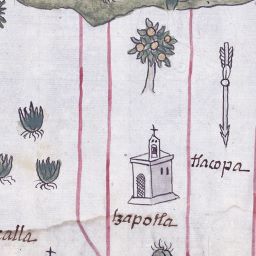 tlacopa
tzapotla
calla